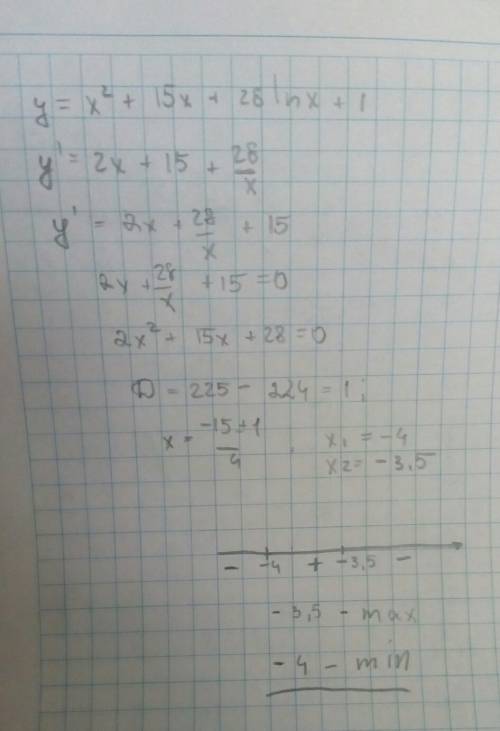 y = x² + 15x + 28 ln x + 1
y' = 2x + 15 + 28/x
y' = 2x + 28/x + 15
2x + 28/x + 15 = 0
2x² + 15x + 28 = 0
D = 225 - 224 = 1;
x = (-15±1)/4 , x₁ = -4
x2 = -3.5
- -4 + -3,5 -
-3,5 - max
-4 - min